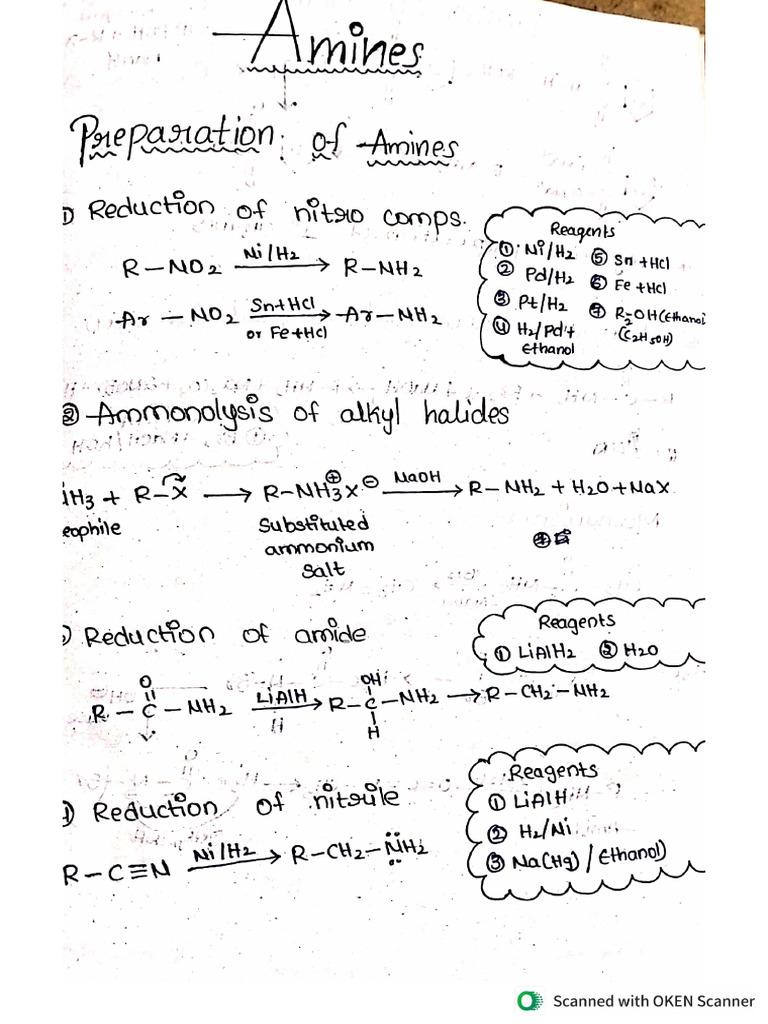 Amines
Preparation of Amines
1) Reduction of nitro comps.
R-NO2 Ni/H2 → R-NH2
Ar-NO2 Sn+HCl or Fe+HCl → Ar-NH2
Reagents
① Ni/H2
② Pd/H2
③ Pt/H2
④ H2/Pd+
Ethanol
⑤ Sn+HCl
⑥ Fe+HCl
⑦ R-OH (Ethanol
(C2H5OH)
② Ammonolysis of alkyl halides
H3 + R-X → R-NH3⊕X⊖ NaOH → R-NH2 + H2O + NaX
eophile
Substituted
ammonium
Salt
) Reduction of amide
Reagents
① LiAlH2 ② H2O
O OH
R-C-NH2 LiAlH → R-C-NH2 → R-CH2-NH2
H
) Reduction of nitrile
R-C≡N Ni/H2 → R-CH2-NH2
Reagents
① LiAlH
② H2/Ni
③ Na(Hg)/Ethanol)
Scanned with OKEN Scanner